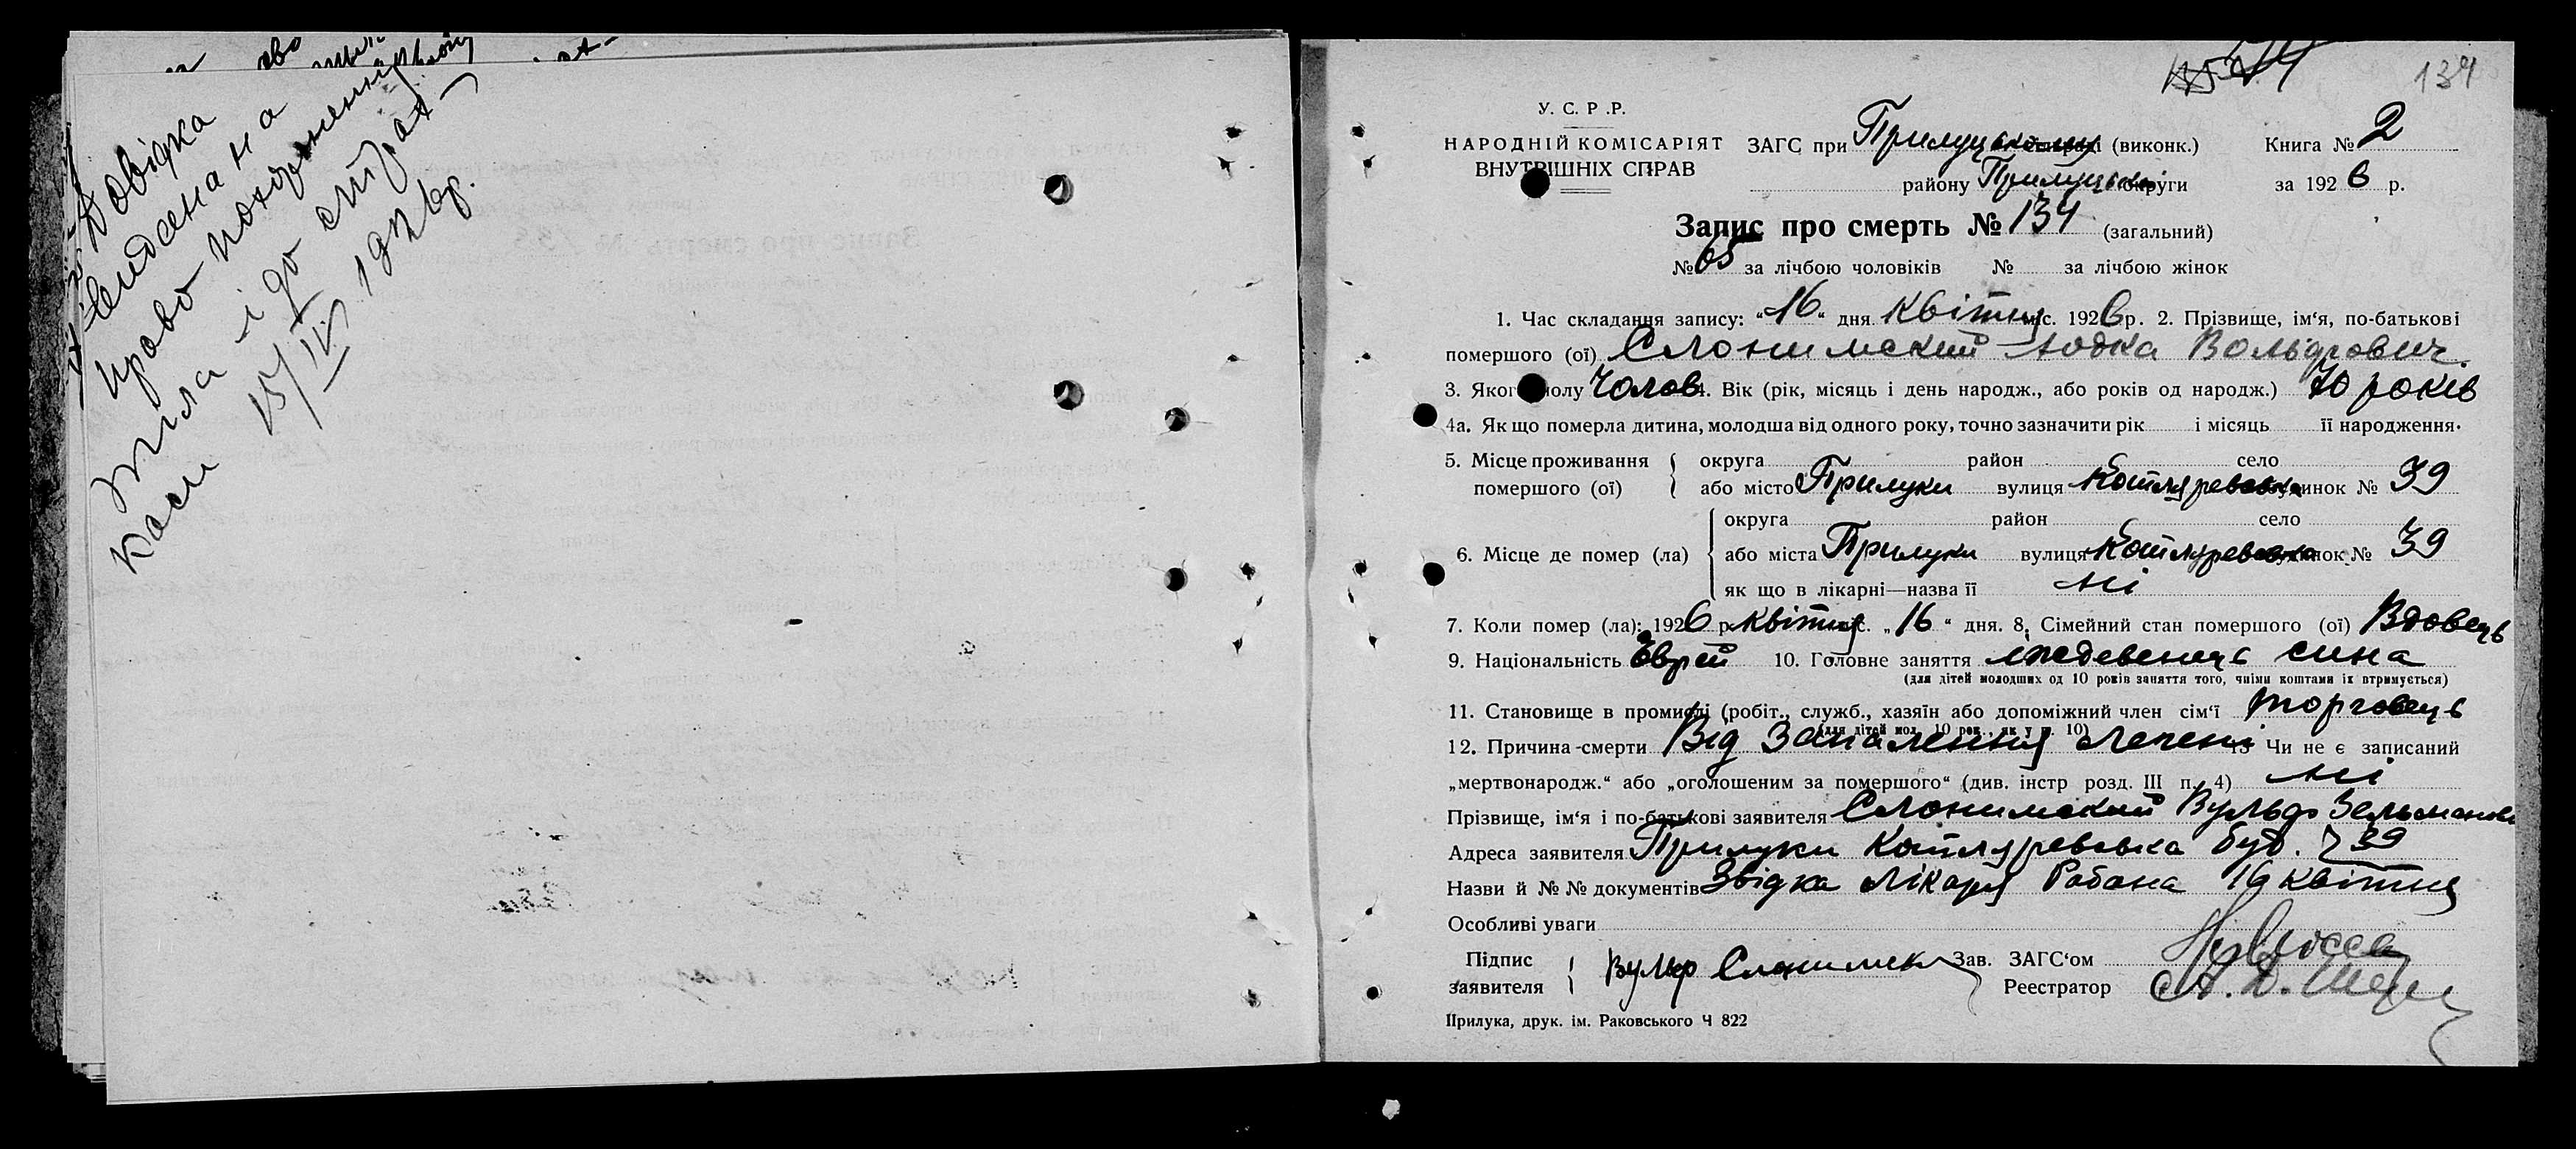 Довідка
видана на
право похоронення
тіла і до страх-
каси
15/IV 1926 р.
134
У. С. Р. Р.
НАРОДНІЙ КОМІСАРІЯТ
ВНУТРІШНІХ СПРАВ
ЗАГС при Прилуцькому (виконк.) Книга № 2
району Прилуцької округи за 1926 р.
Запис про смерть № 134 (загальний)
№ 65 за лічбою чоловіків № за лічбою жінок
1. Час складання запису: “16“ дня квітня міс. 1926 р. 2. Прізвище, ім‘я, по-батькові
помершого (ої) Слонимский Вольфович
3. Якого полу Чолов 4. Вік (рік, місяць і день народж., або років од народж.) 70 років
4а. Як що померла дитина, молодша від одного року, точно зазначити рік і місяць її народження.
5. Місце проживання помершого (ої) { округа район село
або місто Прилуки вулиця Котляревська будинок № 39
6. Місце де помер (ла) { округа район село
або міста Прилуки вулиця Котляревська будинок № 39
як що в лікарні—назва її ні
7. Коли помер (ла): 1926 р. квітня міс. „16“ дня. 8. Сімейний стан помершого (ої) Вдовець
9. Національність Еврей 10. Головне заняття сина
(для дітей молодших од 10 років заняття того, чиїми коштами їх втримується)
11. Становище в промислі (робіт., служб., хазяїн або допоміжний член сім‘ї торговець
(для дітей мол. 10 рок., як у п. 10)
12. Причина смерти Від Запалення печені 13 Чи не є записаний
„мертвонародж.“ або „оголошеним за помершого“ (див. інстр розд. III п. 4) ні
Прізвище, ім‘я і по-батькові заявителя Слонимский Вульф Зельманов
Адреса заявителя Прилуки Котляревська буд. 39
Назви й №№ документів Звідка лікаря Рабана 16 квітня
Особливі уваги
Підпис заявителя } Вульф Слонимск Зав. ЗАГС‘ом
Реестратор
Прилука, друк. ім. Раковського Ч 822